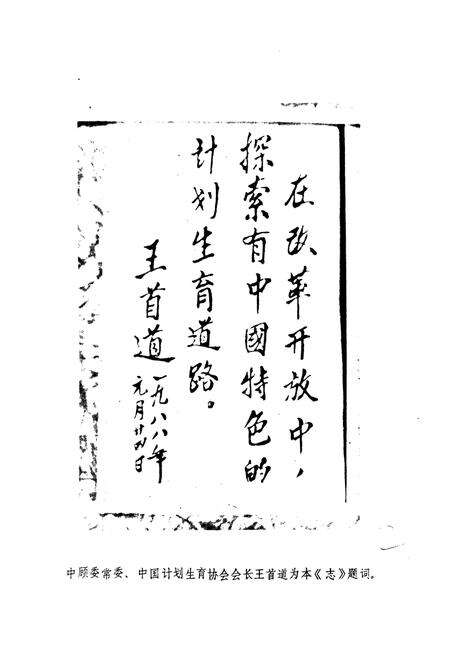 在改革开放中，
探索有中國特色的
计划生育道路。
王首道
一九八八年
元月廿四日
中顾委常委、中国计划生育协会会长王首道为本《志》题词。